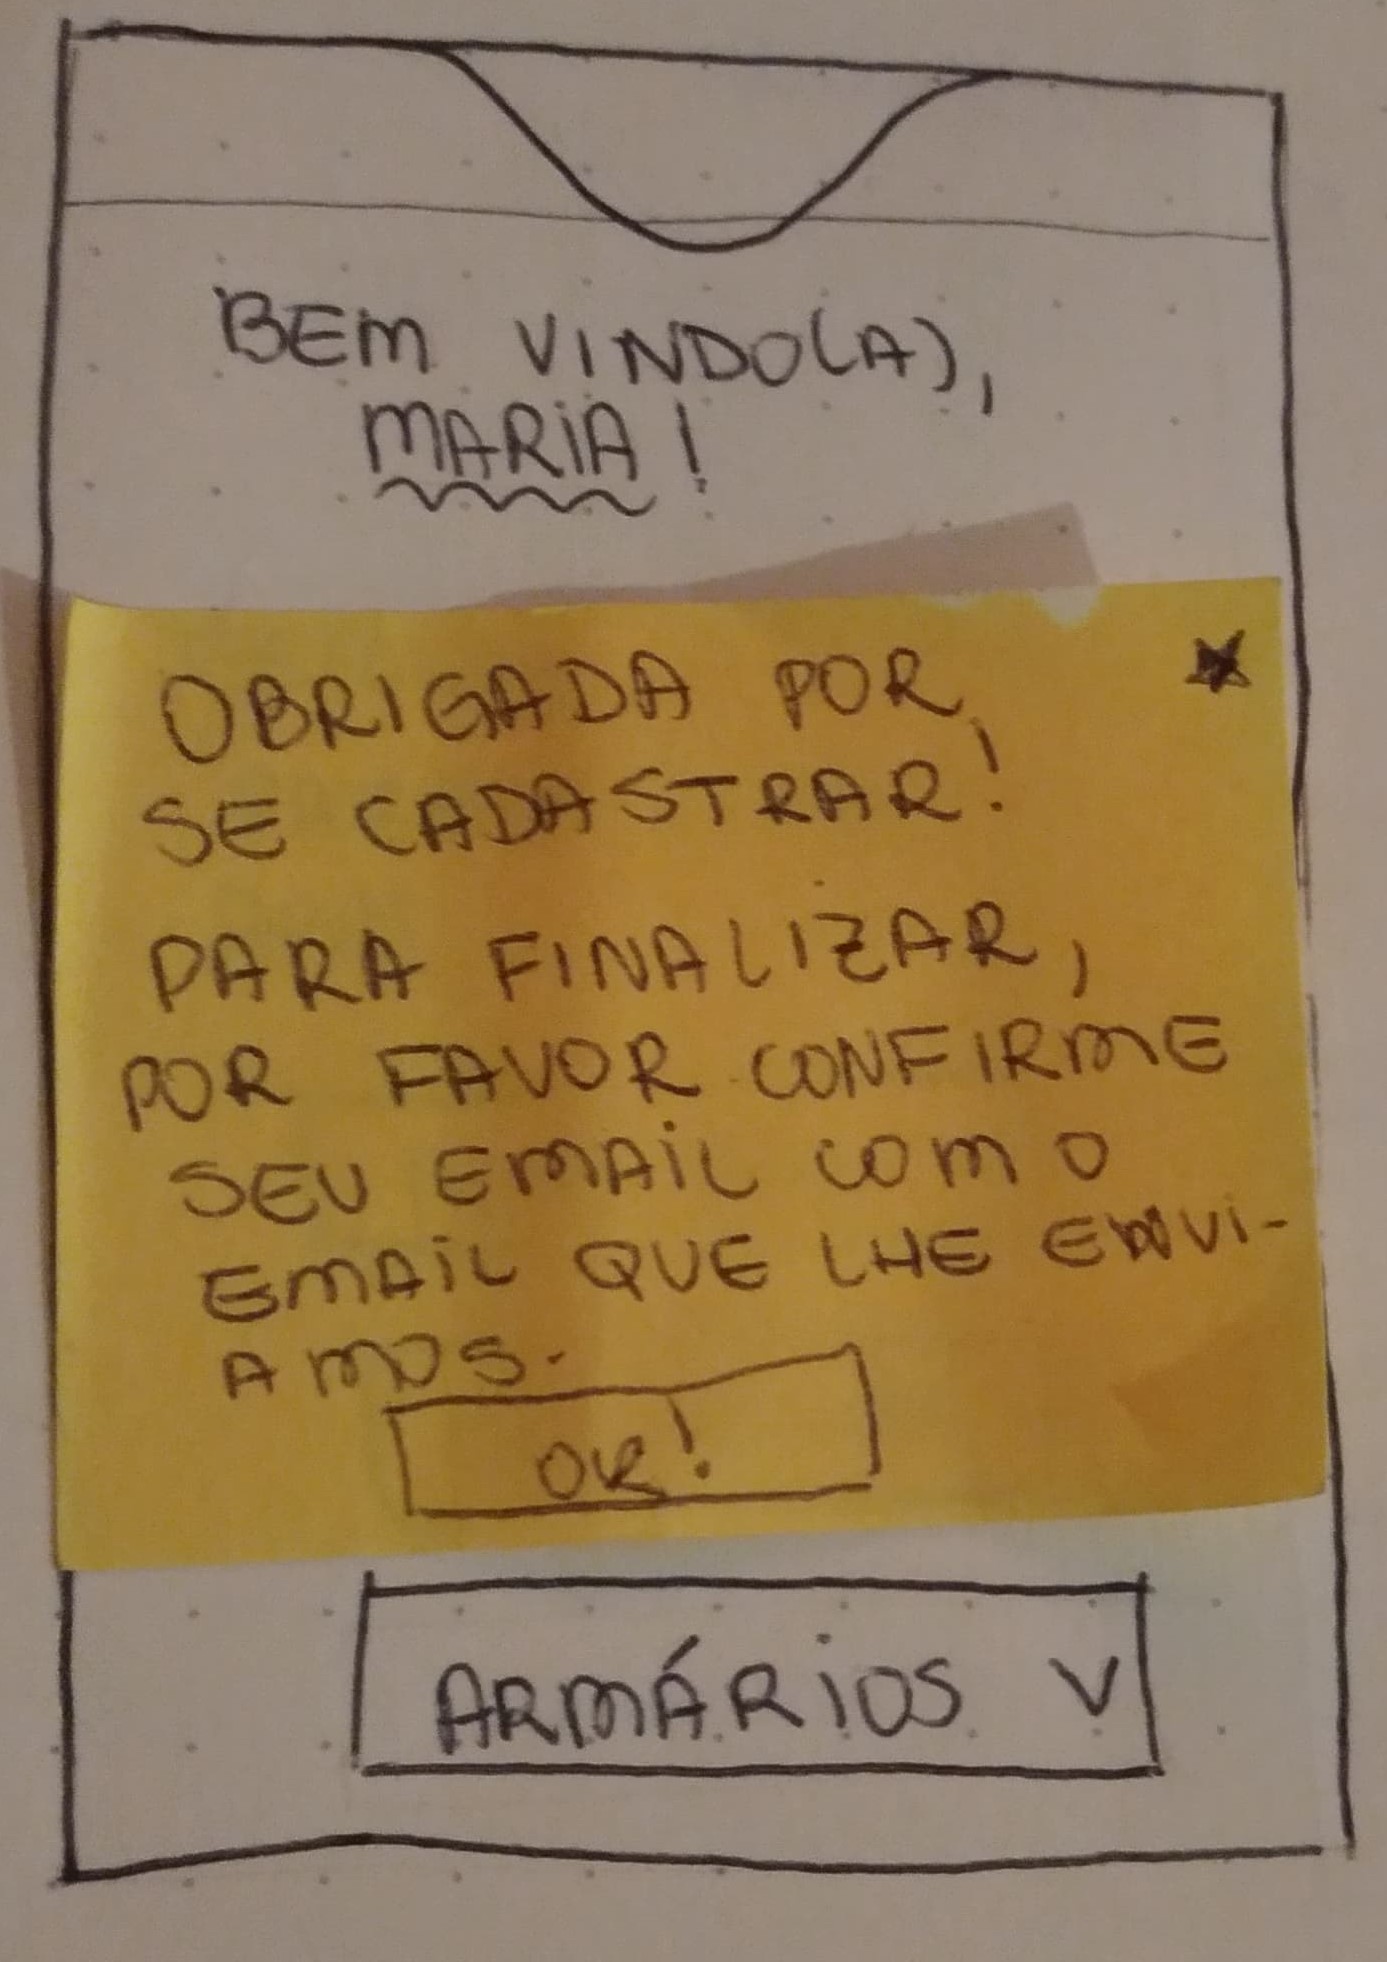 BEM VINDO(A),
MARIA!
OBRIGADA POR
SE CADASTRAR!
PARA FINALIZAR,
POR FAVOR CONFIRME
SEU EMAIL COM O
EMAIL QUE LHE ENVI-
AMOS.
OK!
ARMÁRIOS V